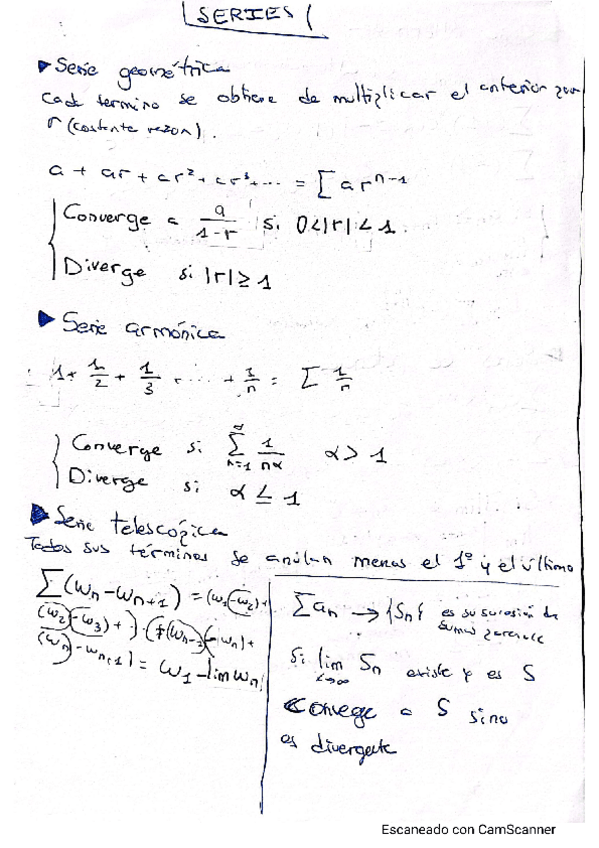 SERIES
▶ Serie geométrica
Cada termino se obtiene de multiplicar el anterior por
r (costante razon).
a + ar + ar² + ar³ + ... = Σ ar^(n-1)
Converge a a/(1-r) si 0<|r|<1.
Diverge si |r| ≥ 1
▶ Serie armónica
1 + 1/2 + 1/3 + ... + 1/n = Σ 1/n
Converge si Σ_(n=1)^∞ 1/n^α α > 1
Diverge si α ≤ 1
▶ Serie telescópica
Todos sus términos se anulan menos el 1º y el último
Σ(w_n - w_(n+1)) = (w_1 - w_2) +
(w_2 - w_3) + ... + (w_(n-1) - w_n) +
(w_n - w_(n+1)) = w_1 - lim w_n
Σ a_n → {S_n} es su sucesión de
sumas parciales
Si lim S_n existe y es S
converge a S sino
es divergente
Escaneado con CamScanner